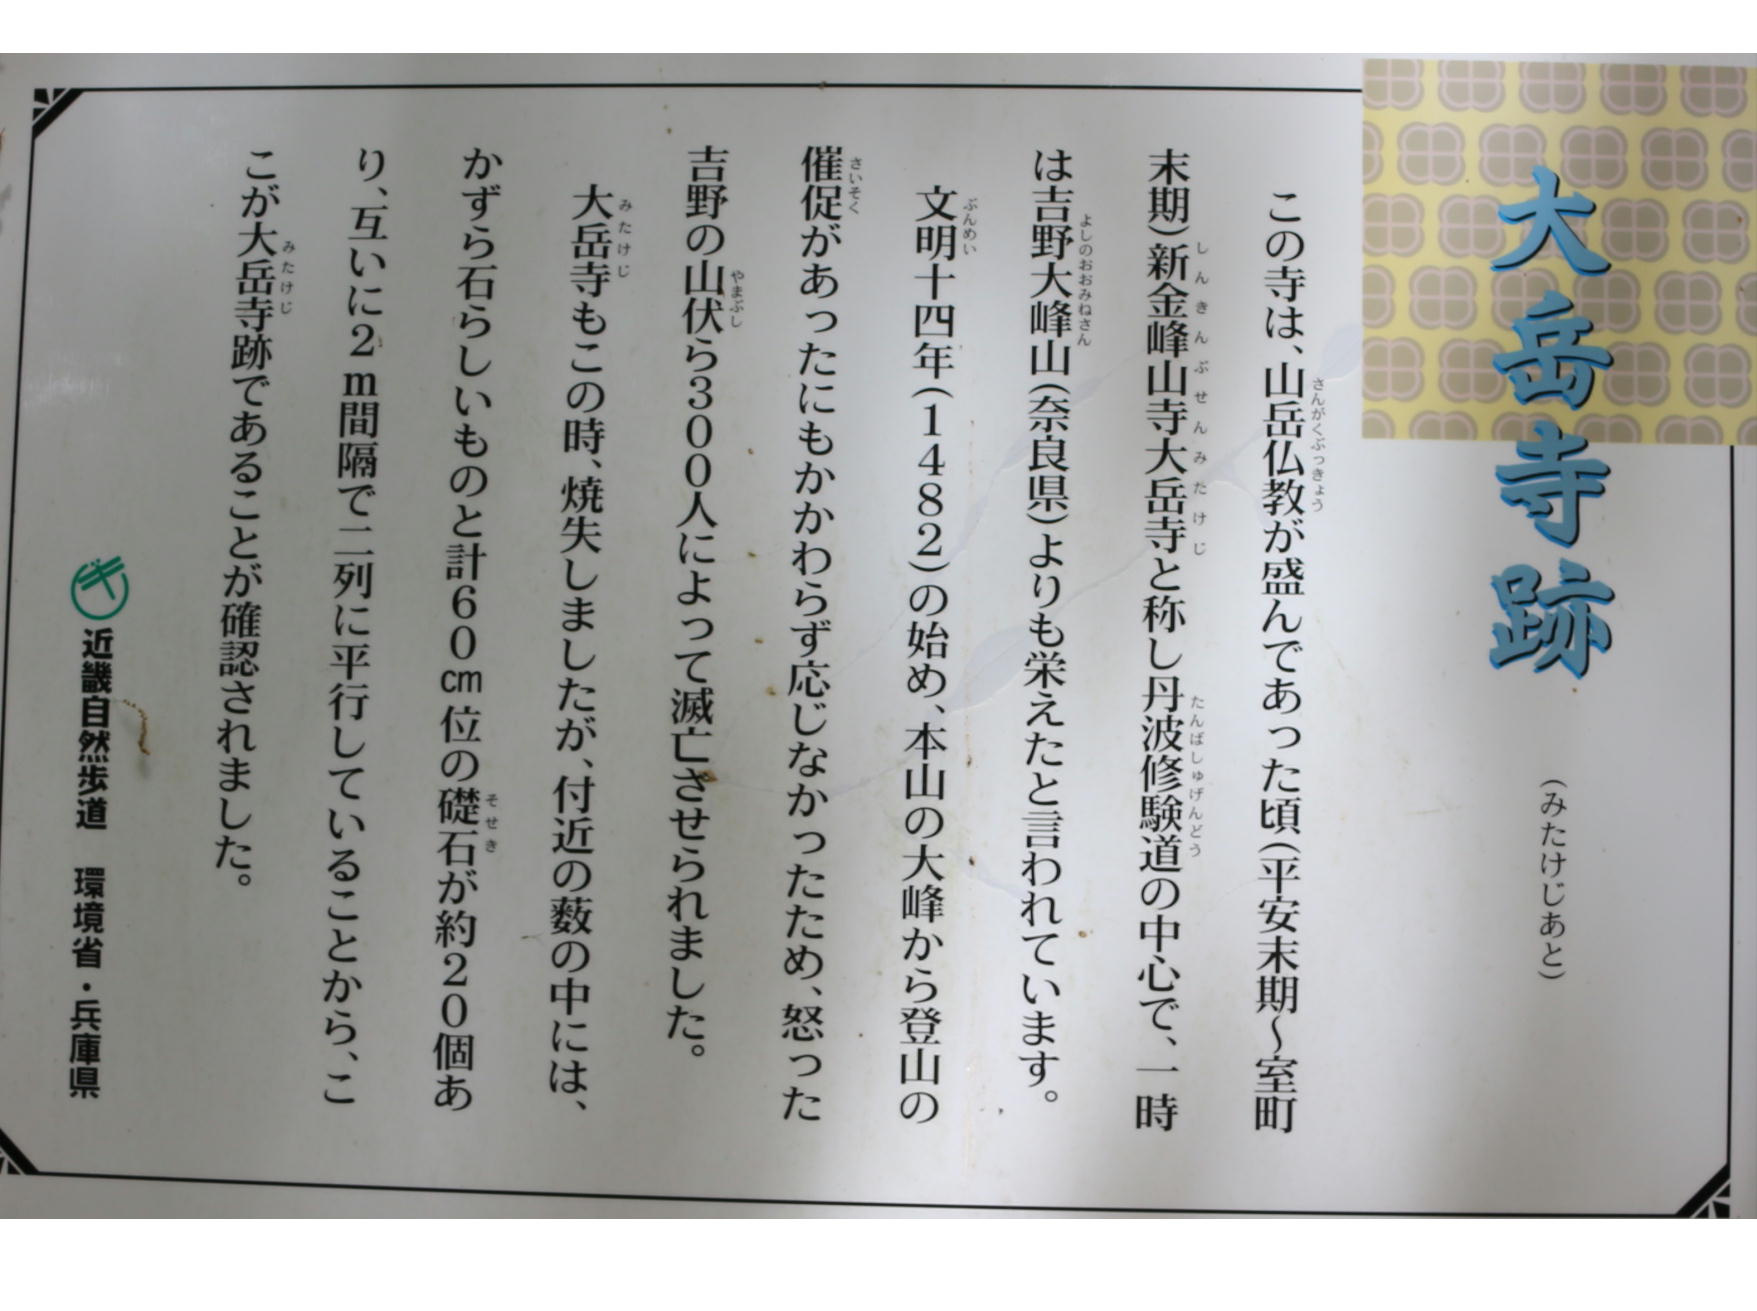 大岳寺跡
（みたけじあと）
この寺は、山岳仏教が盛んであった頃（平安末期～室町
さんがくぶっきょう
末期）新金峰山寺大岳寺と称し丹波修験道の中心で、一時
しんきんぶせんみたけじ
たんばしゅげんどう
は吉野大峰山（奈良県）よりも栄えたと言われています。
よしのおおみねさん
文明十四年（1482）の始め、本山の大峰から登山の
ぶんめい
催促があったにもかかわらず応じなかったため、怒った
さいそく
吉野の山伏ら300人によって滅亡させられました。
やまぶし
大岳寺もこの時、焼失しましたが、付近の薮の中には、
みたけじ
かずら石らしいものと計60cm位の礎石が約20個あ
そせき
り、互いに2m間隔で二列に平行していることから、こ
こが大岳寺跡であることが確認されました。
みたけじ
近畿自然歩道　環境省・兵庫県